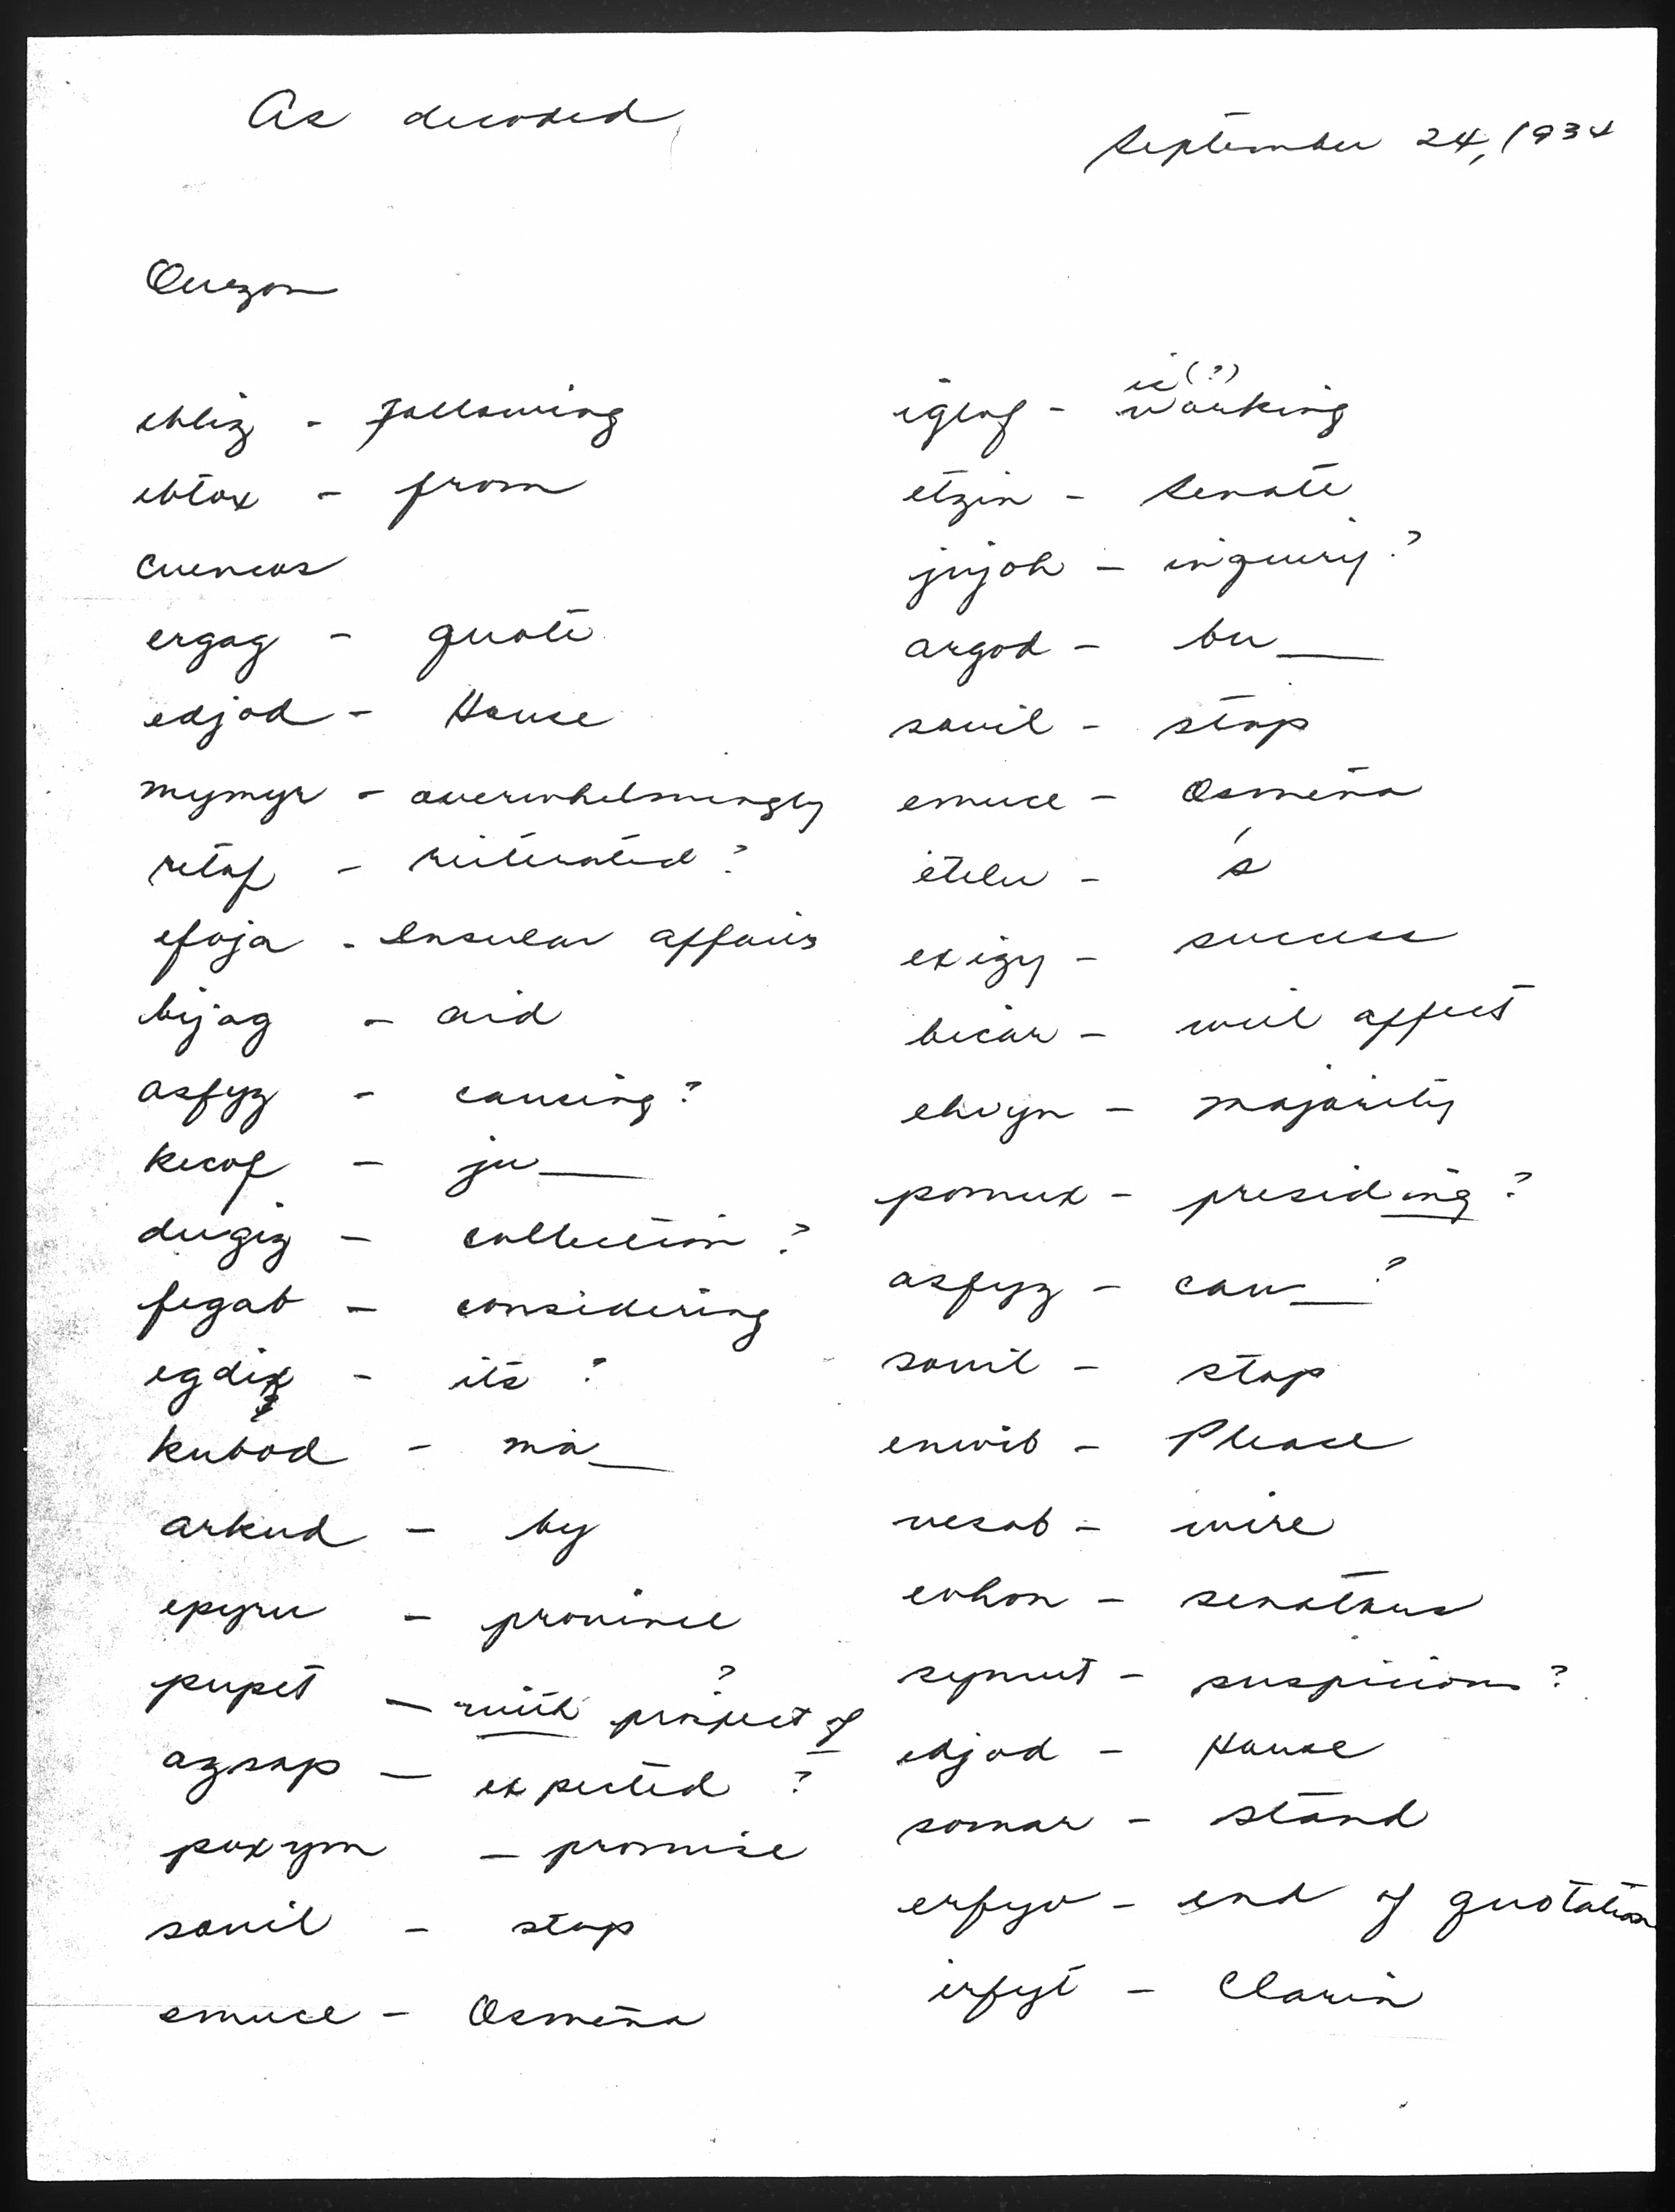 As decoded
September 24, 1934
Quezon
ehliz - Following
ebtox - from
Cuencos
ergag - quote
edjod - House
mymyr - overwhelmingly
retaf - reiterated?
efoja - Insular affairs
bijag - aid
asfyz - causing?
kecof - ju___
dugiz - collection?
fegab - considering
egdix - its?
kubod - ma__
arkud - by
epyru - province
pupet - with project of ?
azsap - expected?
poxym - promise
sovil - stop
emuce - Osmeña
is (?)
iglof - working
etzin - Senate
jujoh - inquiry?
argod - bu___
sovil - stop
emuce - Osmeña
etelu - 's
exizy - success
bicar - will affect
ehvyn - majority
pomux - presiding?
asfyz - cau__?
sovil - stop
enwib - Please
vesob - wire
evhon - senators
symut - suspicion?
edjod - House
somar - stand
erfyv - end of quotation
irfyt - Clarin